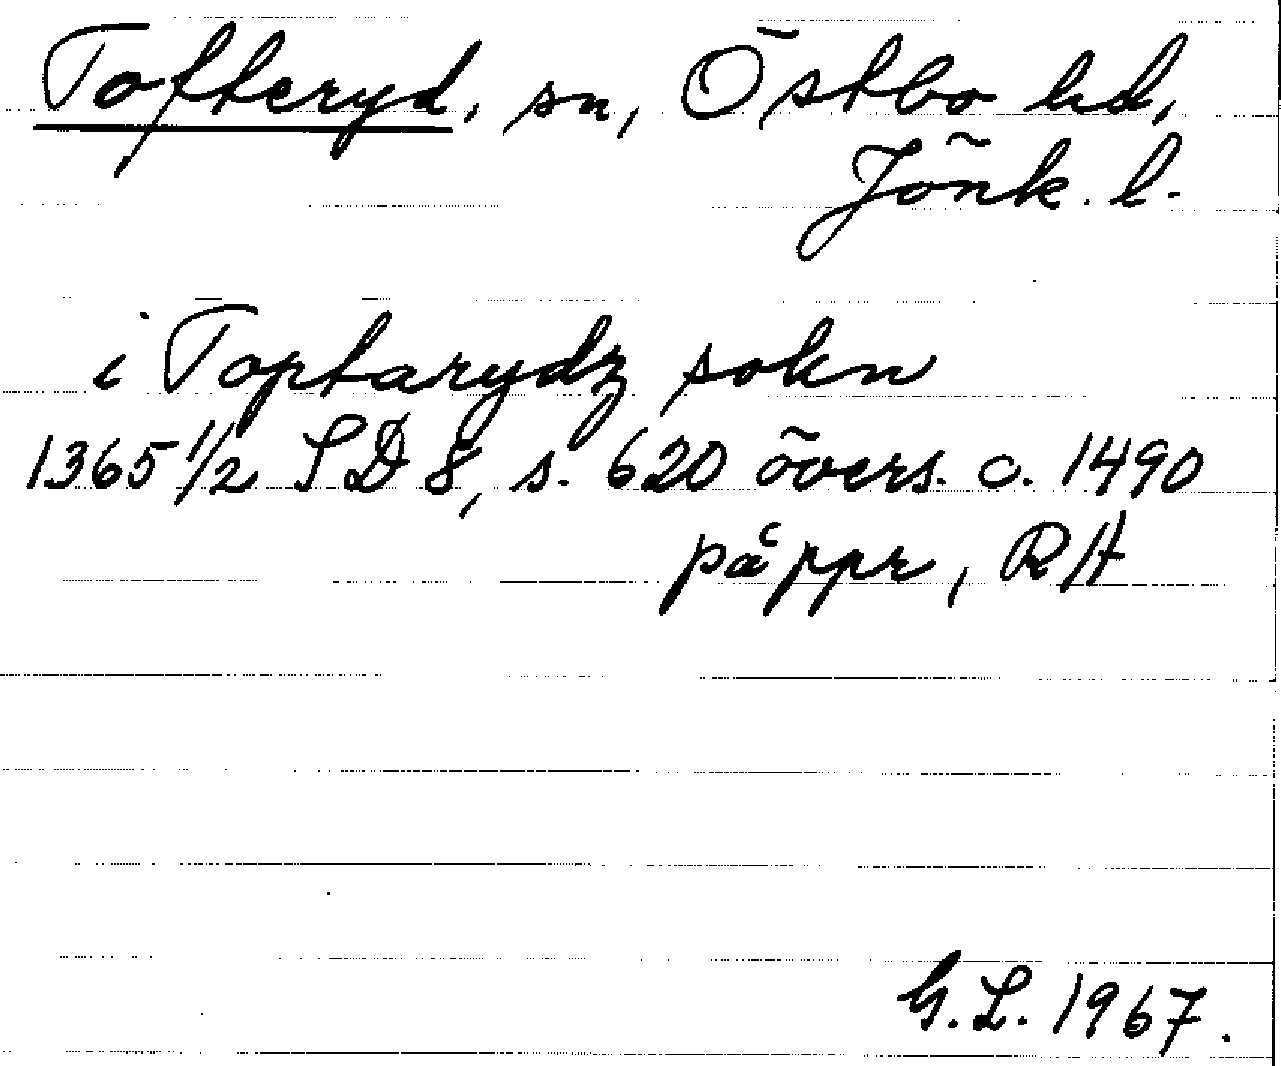 Tofteryd, sn, Östbo hd,
Jönk. l.
i Toptarydz sokn
1365 1/2 SD 8, s. 620 övers. c. 1490
på ppr, RA
G.L. 1967.